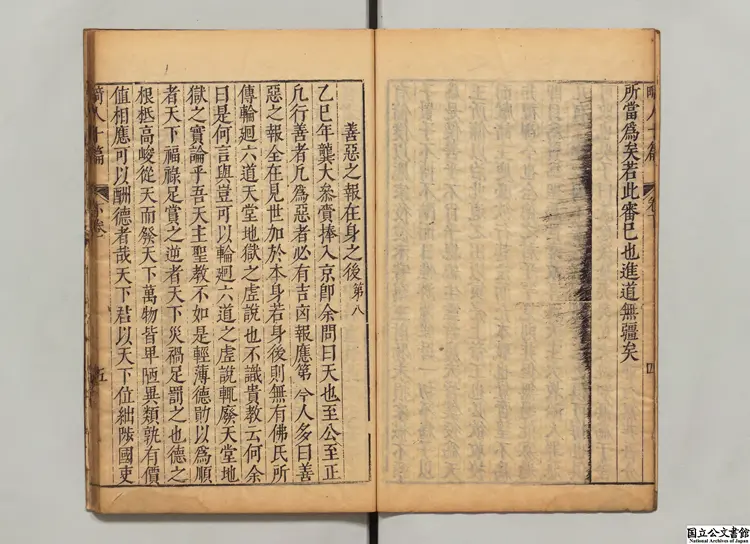 所當爲矣若此審已也進道無疆矣
畸人十篇
善惡之報在身之後第八
乙巳年龔大參賫捧入京卽余問曰天也至公至正
凢行善者凢爲惡者必有吉凶報應第今人多曰善
惡之報全在見世加於本身若身後則無有佛氏所
傳輪廻六道天堂地獄之虛說也不識貴教云何余
曰是何言與豈可以輪廻六道之虛說輒廢天堂地
獄之實論乎吾天主聖教不如是輕薄德勛以爲順
者天下福祿足賞之逆者天下災禍足罰之也德之
根柢高峻從天而發天下萬物皆卑陋異類孰有價
值相應可以酬德者哉天下君以天下位絀陟國吏
畸人十篇
五
国立公文書館
National Archives of Japan